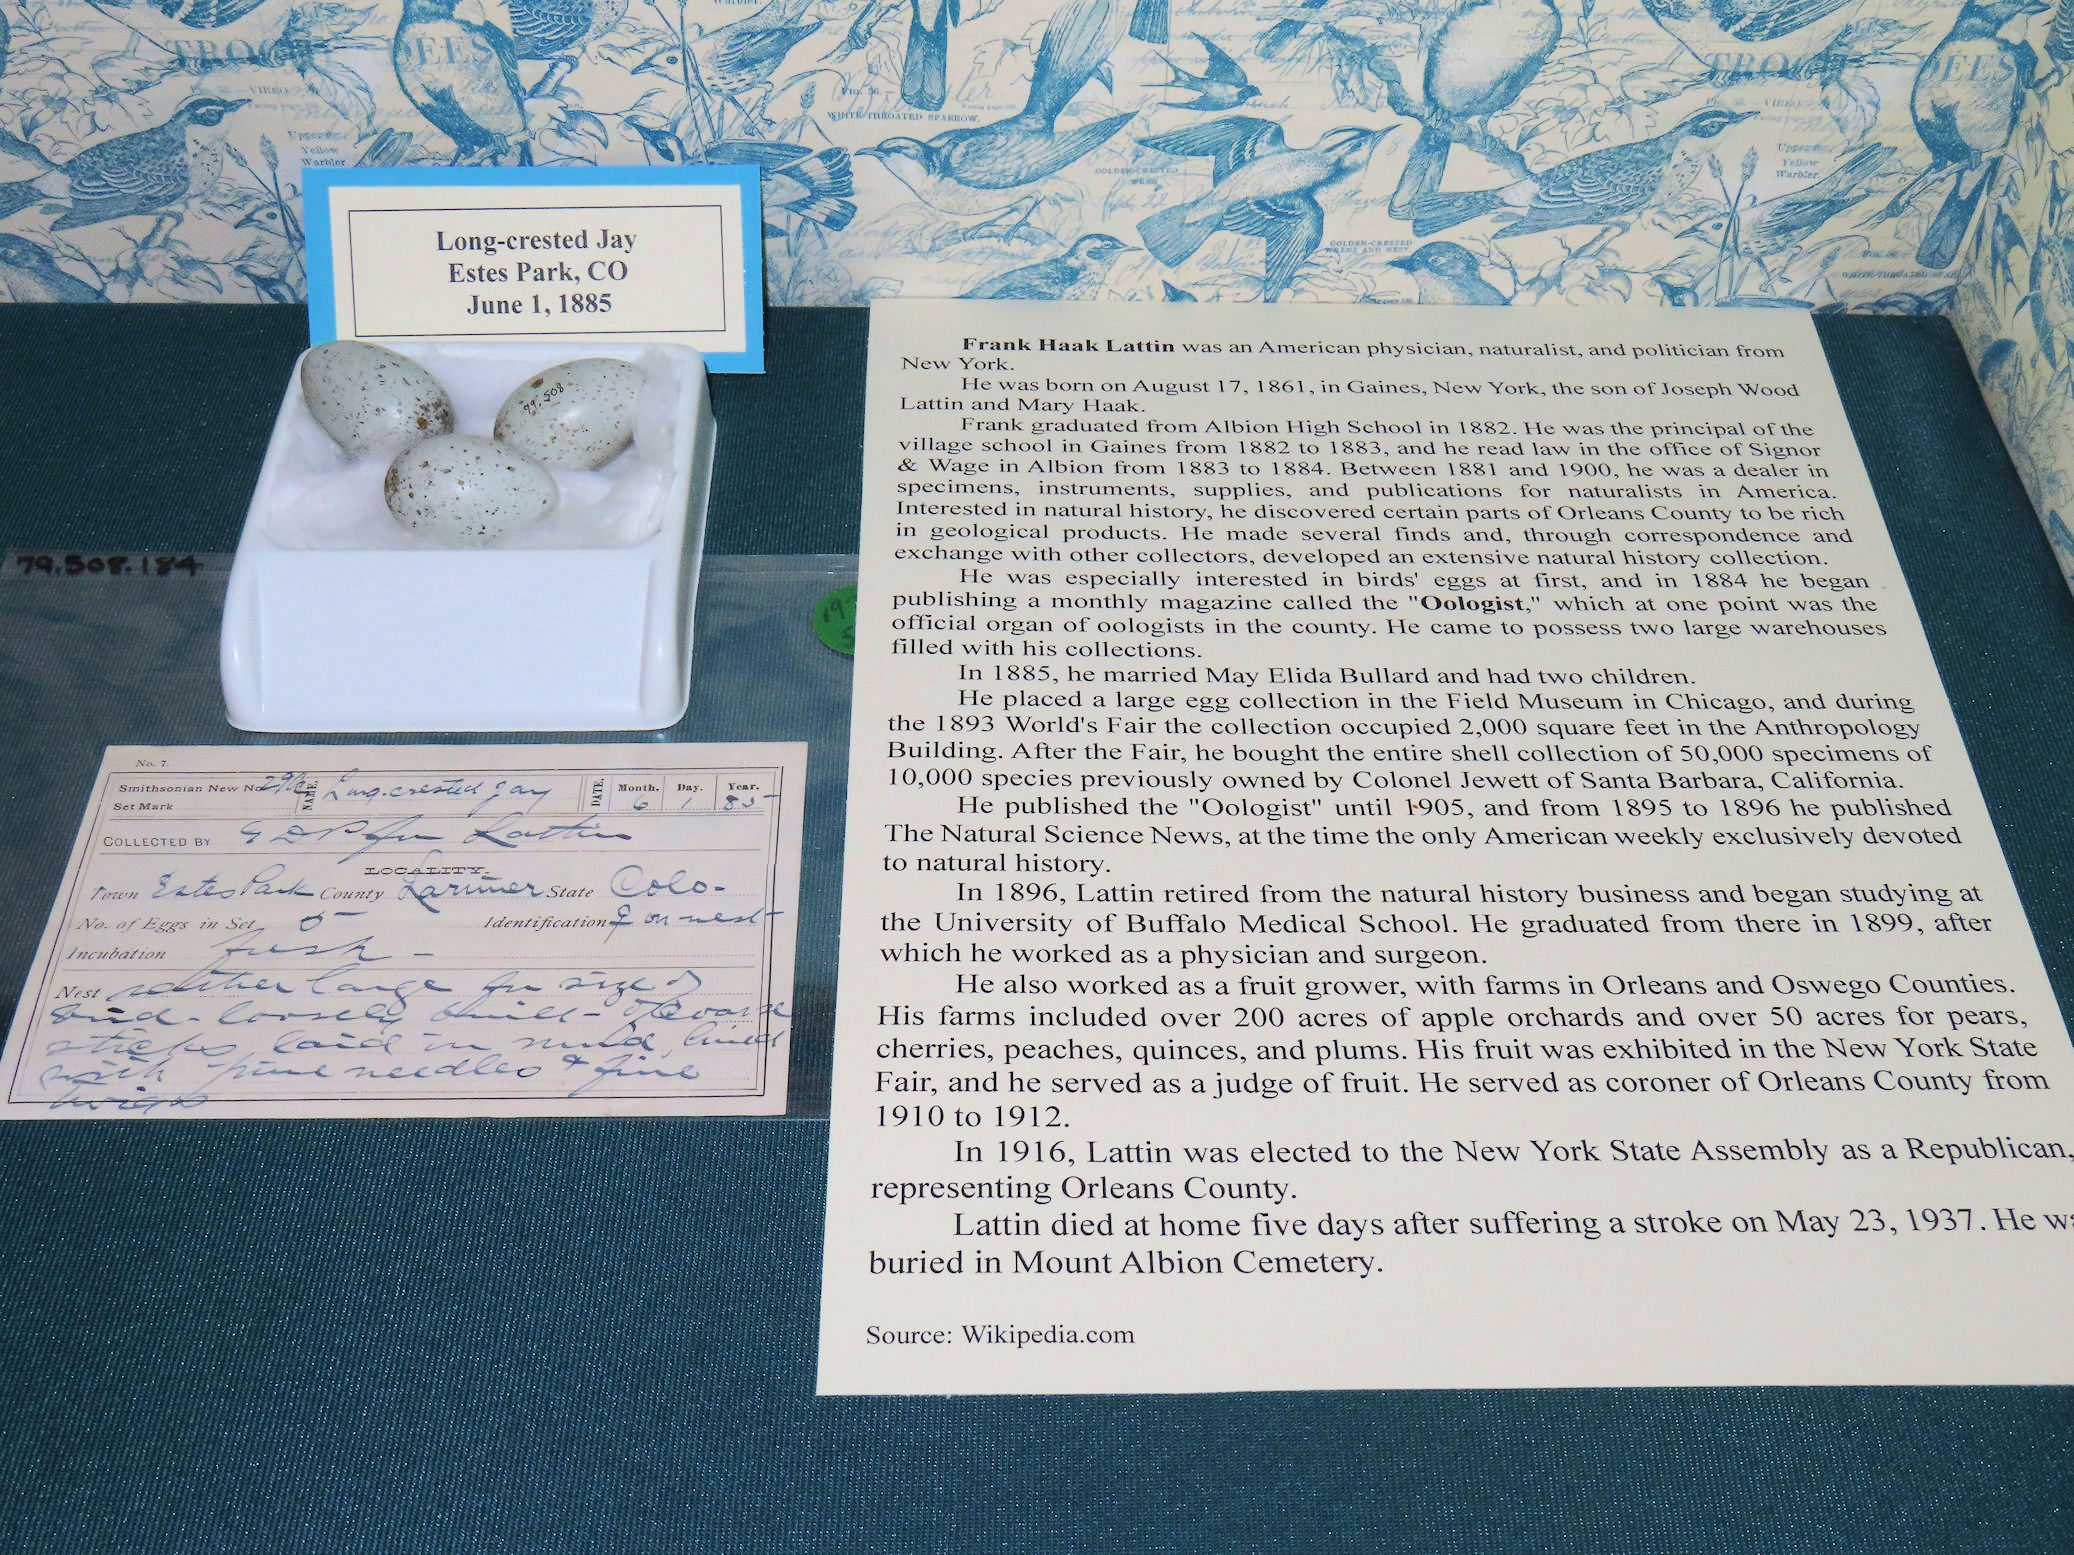 TROGL
DEES
FIG. 55. — VIREO
Upper
Yellow
Warbler.
Warbler.
FIG. 56. —
WHITE-THROATED SPARROW.
GOLDEN-CRESTED
GOLDEN-CRESTED
WRENS AND NEST.
Upper
Yellow
Warbler.
Long-crested Jay
Estes Park, CO
June 1, 1885
79.508
79.508.184
No. 7.
Smithsonian New No. NAME. Long-crested Jay DATE. Month. Day. Year.
Set Mark 6 1 85
COLLECTED BY G D P for Lattin
LOCALITY.
Town Estes Park County Larimer State Colo-
No. of Eggs in Set 5 Identification ♀ on nest
Incubation fresh -
Nest rather large for size of
bird - loosely built - of coarse
sticks laid in mud, lined
with pine needles & fine
twigs
Frank Haak Lattin was an American physician, naturalist, and politician from
New York.
He was born on August 17, 1861, in Gaines, New York, the son of Joseph Wood
Lattin and Mary Haak.
Frank graduated from Albion High School in 1882. He was the principal of the
village school in Gaines from 1882 to 1883, and he read law in the office of Signor
& Wage in Albion from 1883 to 1884. Between 1881 and 1900, he was a dealer in
specimens, instruments, supplies, and publications for naturalists in America.
Interested in natural history, he discovered certain parts of Orleans County to be rich
in geological products. He made several finds and, through correspondence and
exchange with other collectors, developed an extensive natural history collection.
He was especially interested in birds' eggs at first, and in 1884 he began
publishing a monthly magazine called the "Oologist," which at one point was the
official organ of oologists in the county. He came to possess two large warehouses
filled with his collections.
In 1885, he married May Elida Bullard and had two children.
He placed a large egg collection in the Field Museum in Chicago, and during
the 1893 World's Fair the collection occupied 2,000 square feet in the Anthropology
Building. After the Fair, he bought the entire shell collection of 50,000 specimens of
10,000 species previously owned by Colonel Jewett of Santa Barbara, California.
He published the "Oologist" until 1905, and from 1895 to 1896 he published
The Natural Science News, at the time the only American weekly exclusively devoted
to natural history.
In 1896, Lattin retired from the natural history business and began studying at
the University of Buffalo Medical School. He graduated from there in 1899, after
which he worked as a physician and surgeon.
He also worked as a fruit grower, with farms in Orleans and Oswego Counties.
His farms included over 200 acres of apple orchards and over 50 acres for pears,
cherries, peaches, quinces, and plums. His fruit was exhibited in the New York State
Fair, and he served as a judge of fruit. He served as coroner of Orleans County from
1910 to 1912.
In 1916, Lattin was elected to the New York State Assembly as a Republican,
representing Orleans County.
Lattin died at home five days after suffering a stroke on May 23, 1937. He
buried in Mount Albion Cemetery.
Source: Wikipedia.com